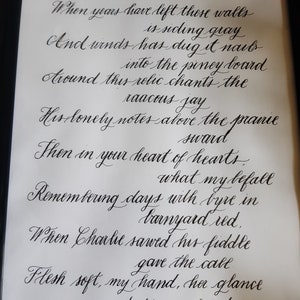 When years have left these walls
is siding gray
And winds has dug it nails
into the piney board
Around this relic chants the
raucous jay
His lonely notes above the prairie
sward
Then in your heart of hearts,
what may befall
Remembering days with byre in
barnyard red.
When Charlie sawed his fiddle
gave the call
Flesh soft, my hand, her glance